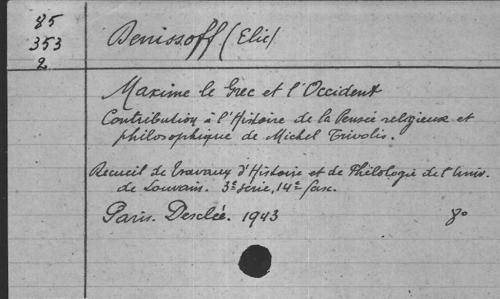 85
353
2
Denissoff (Elie)
Maxime le Grec et l'Occident
Contribution à l'Histoire de la Pensée religieuse et
philosophique de Michel Trivolis.
Recueil de travaux d'Histoire et de Philologie de l'Univ.
de Louvain. 3e série, 14e fasc.
Paris. Desclée. 1943 8o